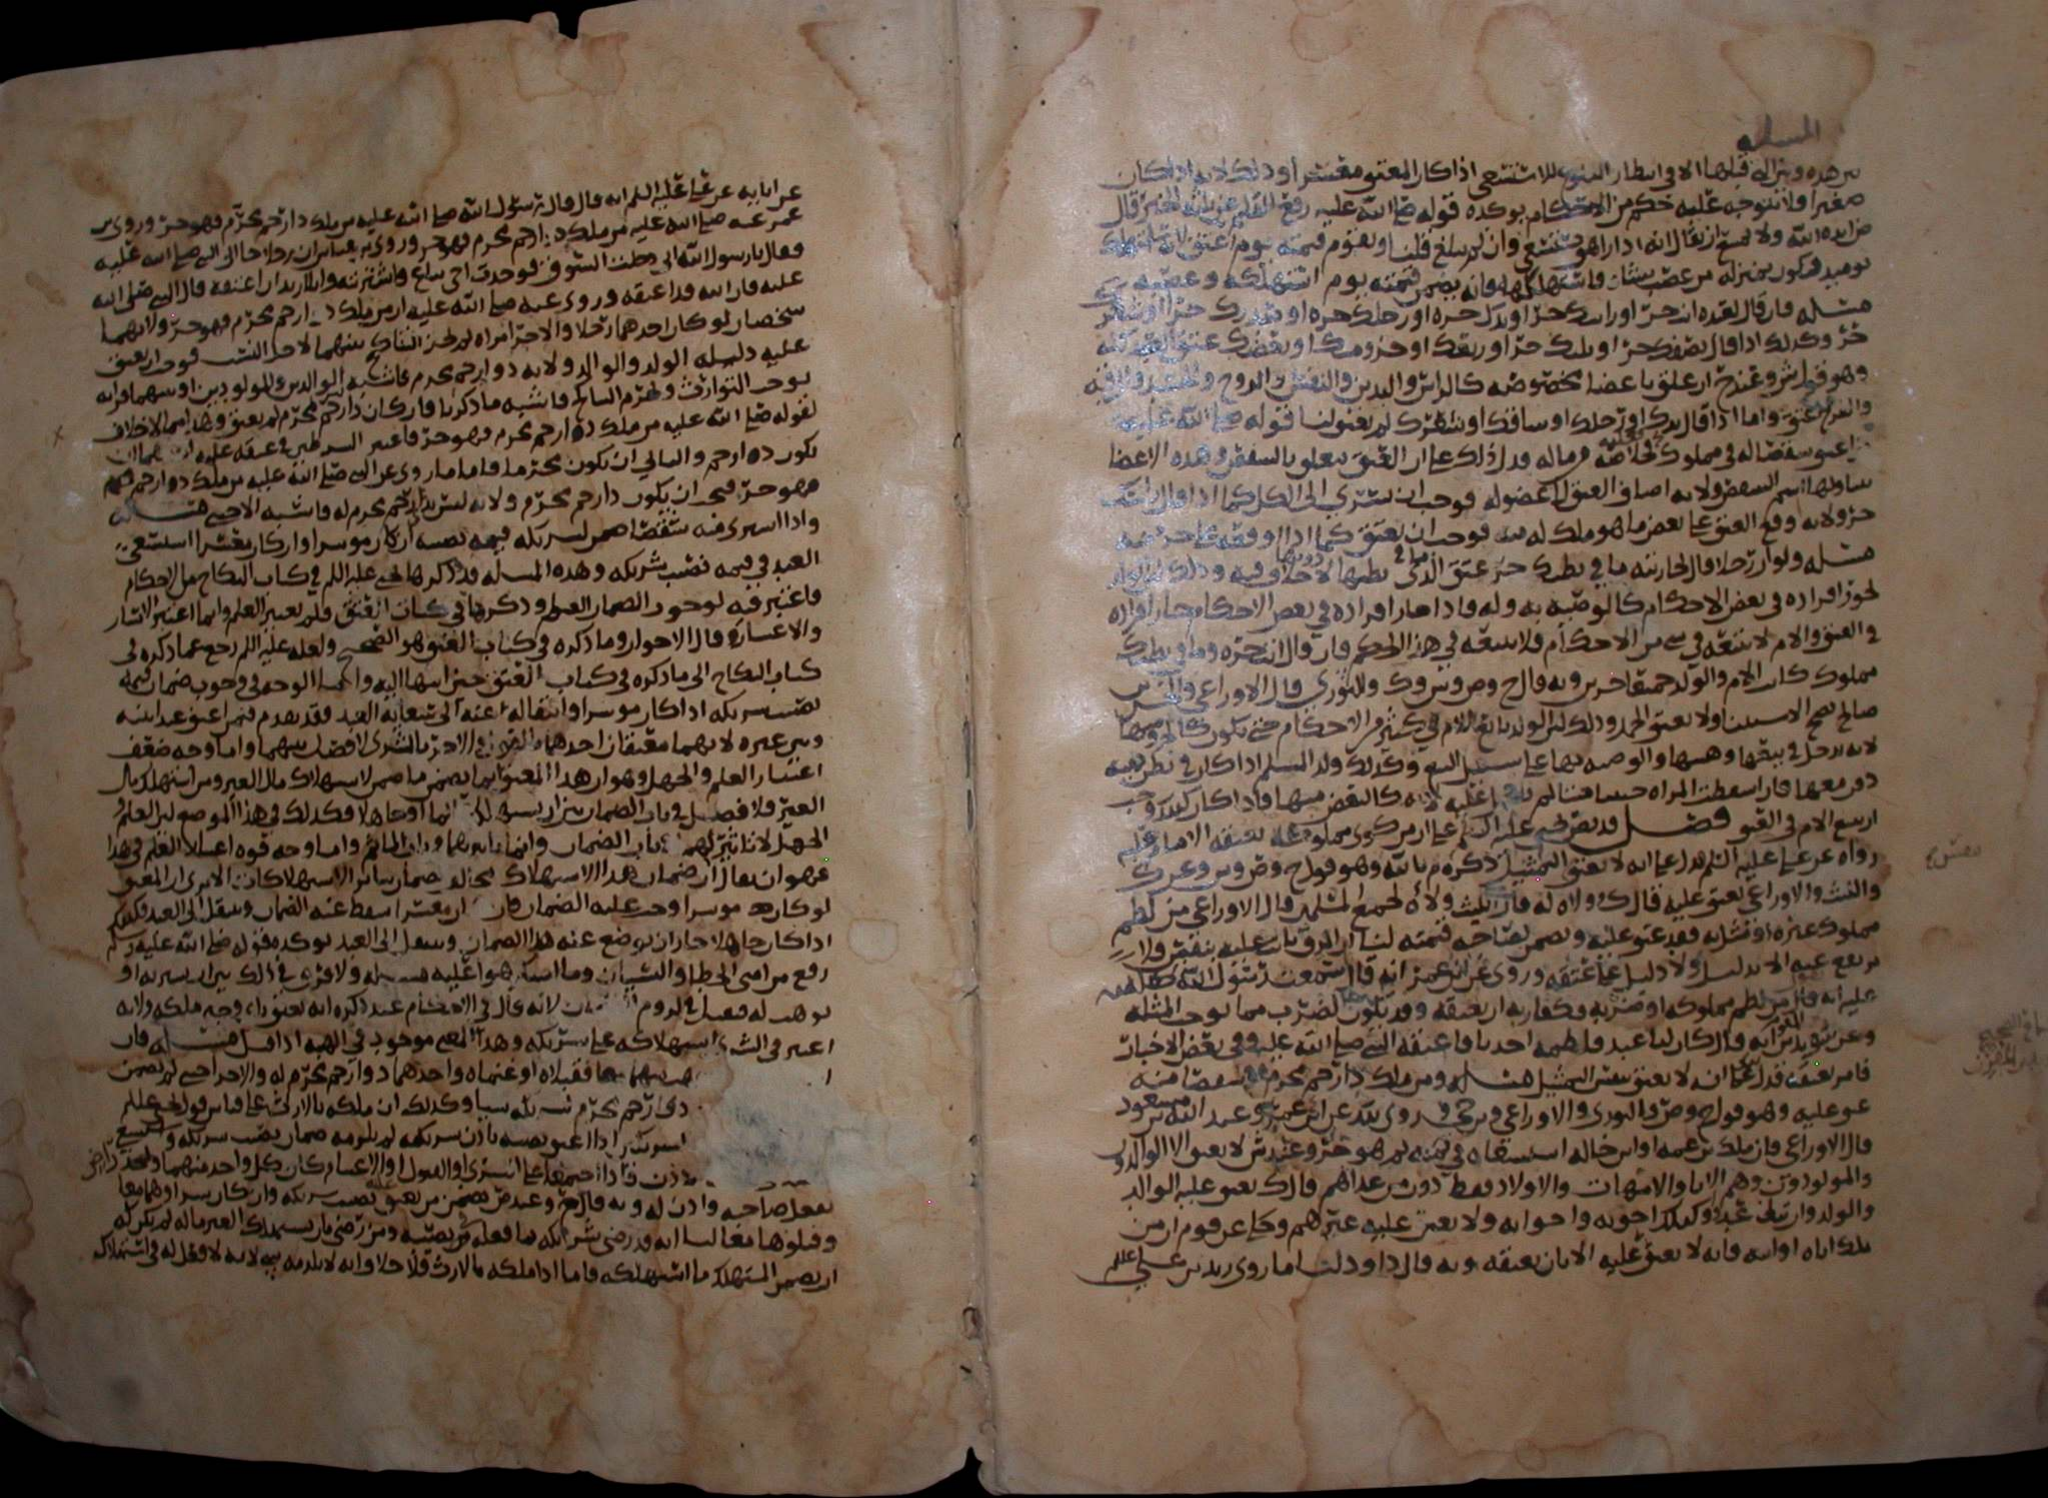 المسله
بين هذه وبين التي قبلها الا في انتظار البلوغ للاستسعى اذا كان المعتق معسرا وذلك لانه اذا كان
صغيرا فلا يتوجه عليه حكم من الاحكام يوكده قوله صلى الله عليه رفع القلم عن ثلثه الخبر قال
ايده الله ولا يمتنع ان يقال انه اذا راهق استسعي وان لم يبلغ قلت او يقوم قيمته يوم اعتق لانه استهلكه
يوميذ فيكون بمنزله من غصب شيئا فاستهلكه فانه يضمن قيمته يوم استهلكه وغصبه
مسله فان قال لعبده انت حر او راسك حر او يدك حره او رجلك حره او صدرك حر او شعرك
حر وكذلك اذا قال نصفك حر او ثلثك حر او ربعك او جزو منك او بعضك عتق العبد كله
وهو قول ش وعند ح ان علق باعضا مخصوصه كالراس والبدن والنفس والروح والجسد والرقبه
والفرج عتق واما اذا قال يدك او رجلك او ساقك او شعرك لم يعتق لنا قوله صلى الله عليه
من اعتق شقصا له في مملوك فخلاصه في ماله فدل ذلك على ان العتق يتعلق بالشقص وهذه الاعضا
يتناولها اسم الشقص ولانه اضاف العتق الى عضو له فوجب ان يسري الى الكل كما اذا قال راسك
حر ولانه وقع العتق على بعض ما هو ملك له منه فوجب ان يعتق كما اذا اوقعه على جزو منه
مسله ولو ان رجلا قال لجاريته ما في بطنك حر عتق الذي في بطنها دونها لا خلاف فيه وذلك لان الولد
يجوز افراده في بعض الاحكام كالوصيه به وله فاذا جاز افراده في بعض الاحكام جاز افراده
في العتق والام لا تتبعه في شي من الاحكام فلا تتبعه في هذا الحكم فان قال انت حره وما في بطنك
مملوك كان الام والولد جميعا حرين وبه قال ح وص وش وك والثوري قال الاوزاعي والحسن بن
صالح يصح الاستثنا ولا يعتق الحمل وذلك لان الولد تابع للام في كثير من الاحكام حتى يكون كالجزو منها
لانه يدخل في بيعها وهبتها والوصيه بها على سبيل التبع وكذلك ولد المسلم اذا كان في بطن ذميه
دفن معها فان اسقطت المراه جنينا ميتا لم يصلى عليه لانه كالبعض منها فاذا كان كذلك وجب
ان يتبع الام في العتق فصل قد نص يحيى عليه السلم على ان من كوى مملوكه عتقه الامام عليه
رواه عن علي عليه السلم فدل على انه لا يعتق بالتمثيل ذكره م بالله وهو قول ح وص وش وعن ك
والليث والاوزاعي يعتق عليه قال ك وولاه له قال الليث ولاه لجميع المسلمين قال الاوزاعي من لطم
مملوك غيره او مثل به فقد عتق عليه ويضمن لصاحبه قيمته لنا ان الرق ثابت عليه بيقين فلا
يرتفع عنه الا بدليل ولا دليل على عتقه وروى عن ابن عمر انه قال سمعت رسول الله صلى الله
عليه انه قال من لطم مملوكه او ضربه فكفارته ان يعتقه وقد يكون الضرب مما يوجب المثله
وعن سويد بن مقرن انه قال كان لنا عبد فلطمه احدنا فاعتقه النبي صلى الله عليه وفي بعض الاخبار
فامر بعتقه فدل على انه لا يعتق بنفس التمثيل مسله ومن ملك ذا رحم محرم او شقصا منه
عتق عليه وهو قول ح وص والثوري والاوزاعي وبن حي وروي ذلك عن ابن عمر وعبد الله بن مسعود
قال الاوزاعي فان ملك بن عمه او ابن خاله استسعاه في ثمنه ثم هو حر وعند ش لا يعتق الا الوالدون
والمولودون وهم الابا والامهات والاولاد فقط دون من عداهم قال ك يعتق عليه الوالد
والولد وان سفل عنده وكذلك اخوته واخواته ولا يعتق عليه غيرهم وحكي عن قوم ان من
ملك اباه او ابنه فانه لا يعتق عليه الا بان يعتقه وبه قال داود دليلنا ما روى زيد بن علي علم
عن ابايه عن علي عليه السلم انه قال قال رسول الله صلى الله عليه من ملك ذا رحم محرم فهو حر وروى بن
عمر عنه صلى الله عليه من ملك ذا رحم محرم فهو حر وروى بن عباس ان رجلا جا الى النبي صلى الله عليه
فقال يا رسول الله اني دخلت السوق فوجدت اخي يباع فاشتريته وانا اريد ان اعتقه قال النبي صلى الله
عليه فان الله قد اعتقه وروى عنه صلى الله عليه ان من ملك ذا رحم محرم فهو حر ولانهما
شخصان لو كان احدهما رجلا والاخر امراه لم يجز النكاح بينهما لاجل النسب فوجب ان يعتق
عليه دليله الولد والوالد ولانه ذو رحم محرم فاشبه الوالدين والمولودين او بينهما قرابه
توجب التوارث وتحرم التناكح فاشبه ما ذكرنا فان كان ذا رحم غير محرم لم يعتق وهذا مما لا خلاف
لقوله صلى الله عليه من ملك ذا رحم محرم فهو حر فاعتبر الشرطين في عتقه عليه
يكون ذا رحم والثاني ان يكون محرما فاما ما روي عن النبي صلى الله عليه من ملك ذا رحم
فهو حر فيجب ان يكون ذا رحم محرم ولانه ليس بذي رحم محرم له فاشبه الاجنبي مسله
واذا اشترى منه شقصا ضمن لشريكه قيمه نصيبه ان كان موسرا وان كان معسرا استسعى
العبد في قيمه نصيب شريكه وهذه المسله قد ذكرها يحيى عليه السلم في كتاب النكاح من الاحكام
فاعتبر فيه لوجوب الضمان العلم وذكرها في كتاب العتق فلم يعتبر العلم وانما اعتبر اليسار
والاعسار قال الاخوان وما ذكره في كتاب العتق هو الصحيح ولعله عليه السلم رجع عما ذكره في
كتاب النكاح الى ما ذكره في كتاب العتق حين انتهى اليه وانما الوجه في وجوب ضمان قيمه
نصيب شريكه اذا كان موسرا وانتقاله عنه الى سعايه العبد فقد تقدم فيمن اعتق عبدا بينه
وبين غيره لانهما معتقان احدهما بالقول والاخر بالشرى لا فصل بينهما واما وجه ضعف
اعتبار العلم والجهل وهو ان هذا المعتق انما يضمن ما ضمن لاستهلاك مال الغير ومن استهلك مال
الغير فلا فصل في باب الضمان بين ان يستهلكه عالما او جاهلا فكذلك في هذا الموضع لان العلم و
الجهل لا تاثير لهما في باب الضمان وانما تاثيرهما في باب الماثم واما وجه قوه اعتبار العلم في هذا
فهو ان يقال ان ضمان هذا الاستهلاك يخالف ضمان سائر الاستهلاكات الا ترى ان المعتق
لو كان موسرا وجب عليه الضمان فان كان معسرا سقط عنه الضمان وينتقل الى العبد فكذلك
اذا كان جاهلا جاز ان يوضع عنه هذا الضمان وينتقل الى العبد يوكده قوله صلى الله عليه
رفع عن امتي الخطا والنسيان وما استكرهوا عليه مسله ولا فرق في ذلك بين ان يشتريه او
يوهب له فيقبل في لزوم الضمان لانه قال في الاحكام عند ذكره انه يعتق باي وجه ملكه ولانه
اعتبر في الشرى استهلاكه على شريكه وهذا المعنى موجود في الهبه اذا قبل مسله فان
فقبلاه او غنماه واحدهما ذو رحم محرم له والاخر اجنبي لم يضمن
ذو رحم محرم لشريكه شيا وكذلك ان ملكه بالارث على قياس قول يحيى علم
اذا اعتق نصيبه باذن شريكه لم يلزمه ضمان نصيب شريكه
اذن فاذا اجتمعا على الشرى او القبول او الاغتنام كان كل واحد منهما
بفعل صاحبه واذن له وبه قال ح وعند ص يضمن من يعتق عليه نصيب شريكه وان كان شريا وهما معا
وقبلوها معا لنا انه قد رضي شريكه بما فعله في نصيبه ومن رضي بان يستهلك الغير ماله لم يكن له
ان يضمن المستهلك ما استهلكه فاما اذا ملكه بالارث فلا خلاف انه لا يلزمه شي لانه لا فعل له في استهلاكه